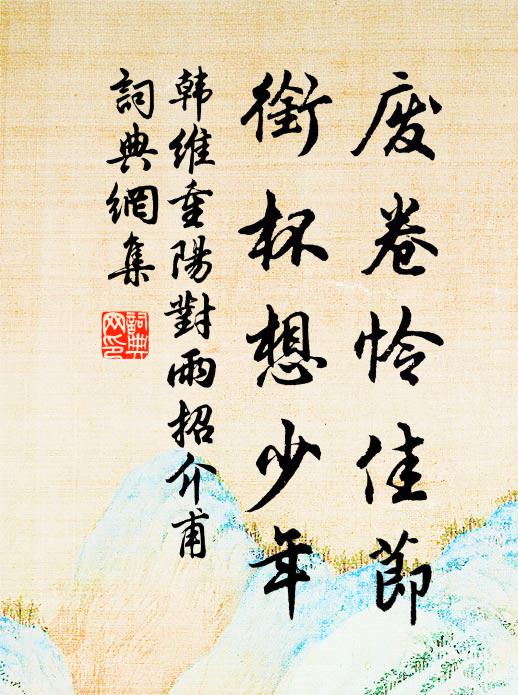 废卷怜佳節
銜杯想少年
韩维重陽對雨招介甫
詞典網集
詞典网印